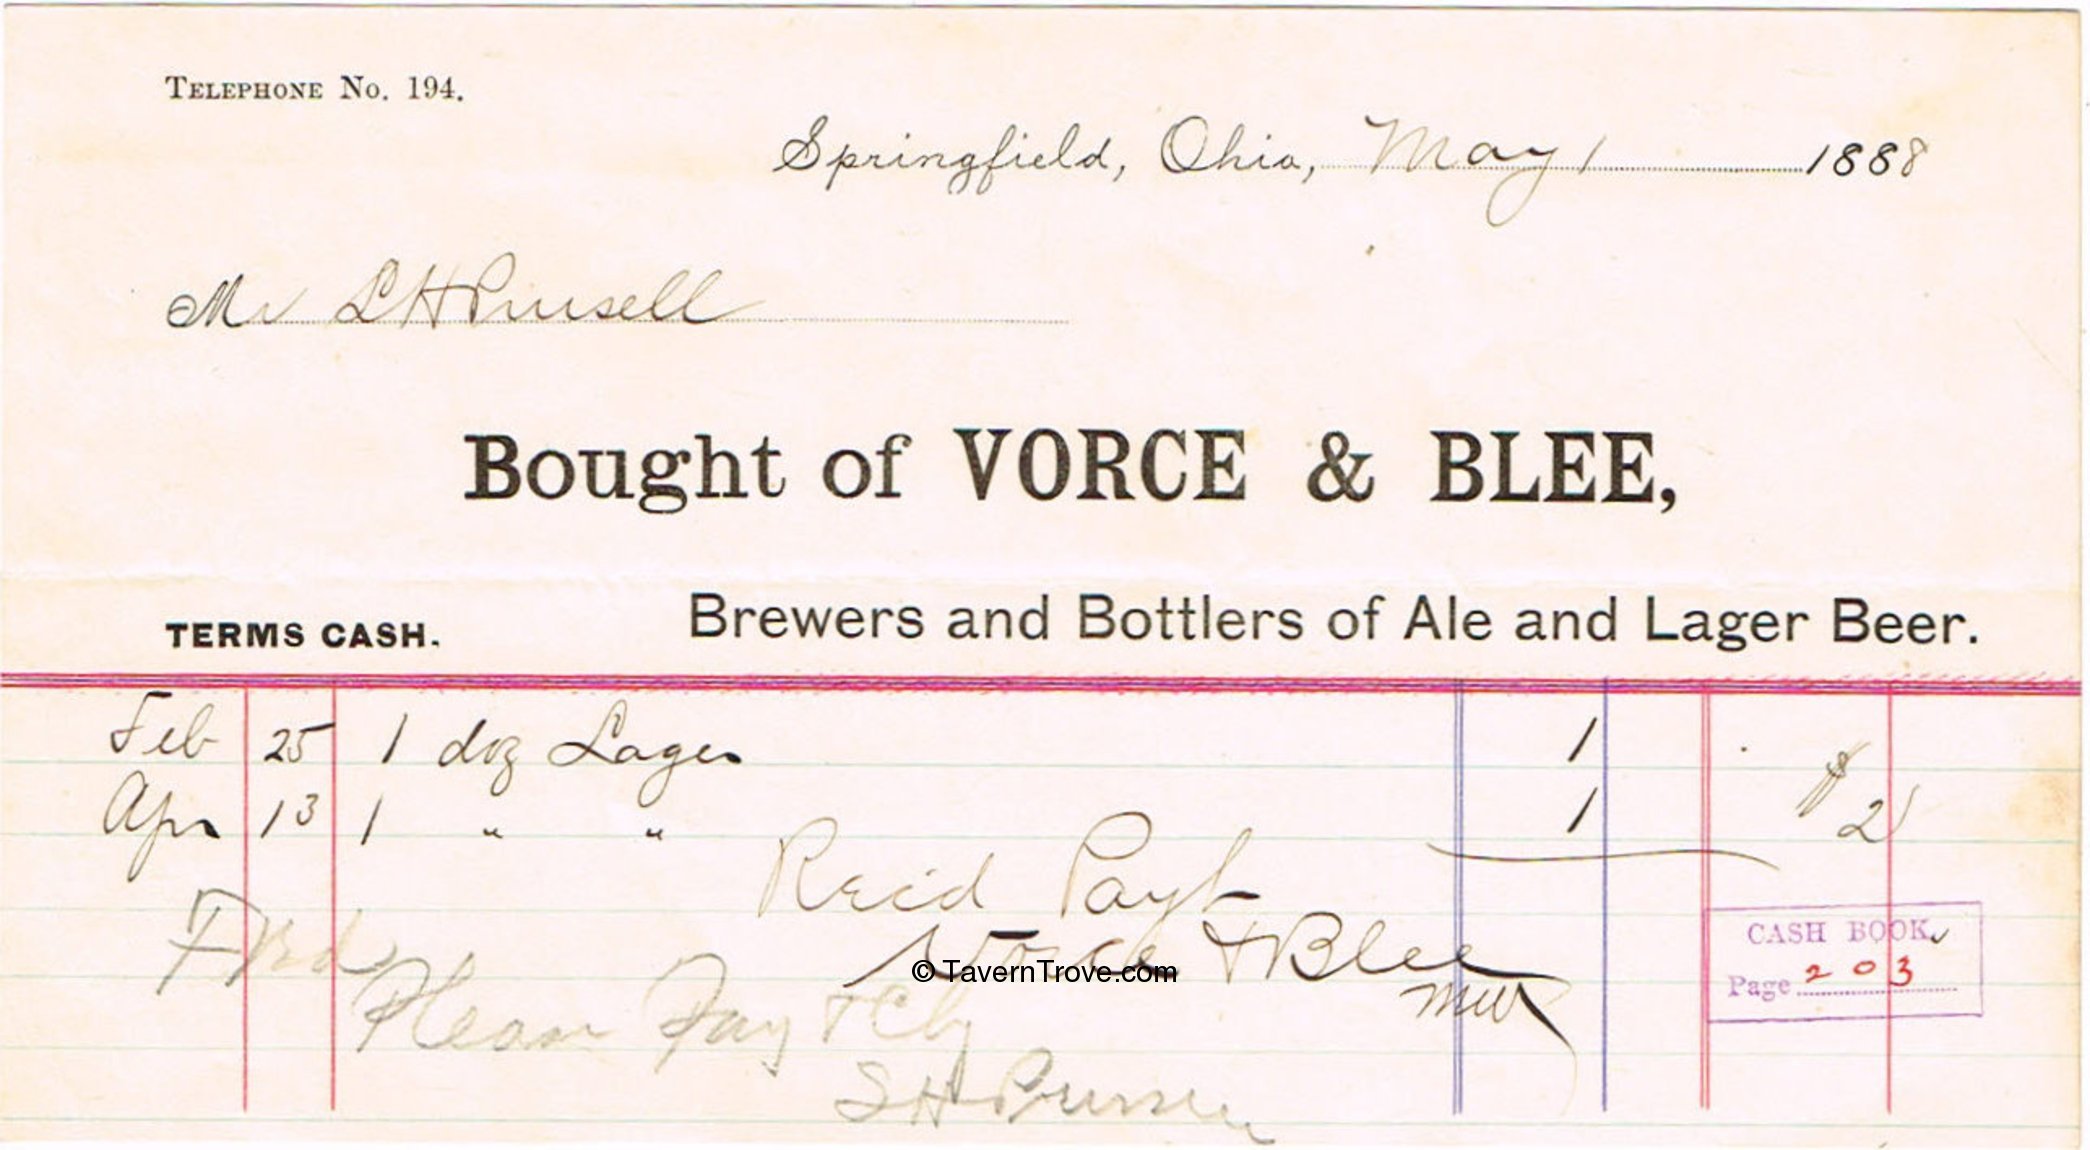 TELEPHONE NO. 194.
Springfield, Ohio, May 1 1888
Mr L H Pursell
Bought of VORCE & BLEE,
TERMS CASH. Brewers and Bottlers of Ale and Lager Beer.
Feb 25 1 doz Lager 1
Apr 13 1 " " 1 $2
Recd Payt
Vorce & Blee
CASH BOOK
Page 203
© TavernTrove.com
Please Pay